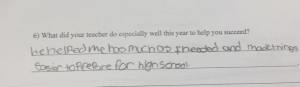 6) What did your teacher do especially well this year to help you succeed?
he helped me too much as I needed and made things
Easier to Prepare for high school